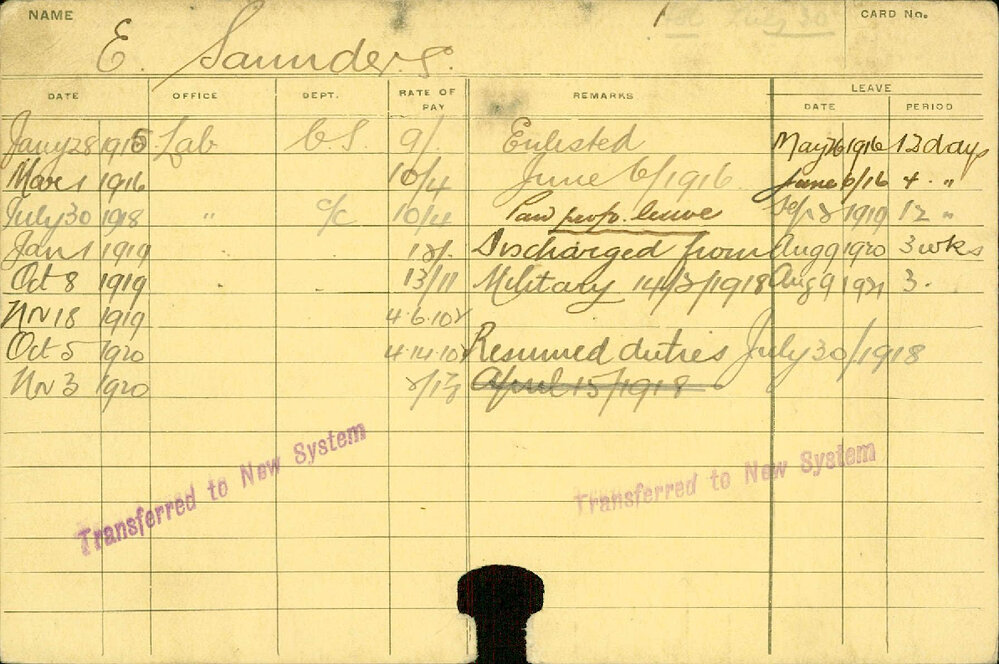 NAME E. Saunders. CARD No.
DATE OFFICE DEPT. RATE OF PAY REMARKS LEAVE
DATE PERIOD
Jany 28 1915 Lab C.S. 9/. Enlisted May 26 1916 12 days
Mar 1 1916 10/4 June 6/1916 June 6/16 4 . "
July 30 1918 " c/c 10/4 Paid leave 1919 12 "
Jan 1 1919 Discharged from Aug 9 1920 3 wks
Oct 8 1919 13/11 Military 1918 Aug 9 1921 3.
Nov 18 1919
Oct 5 1920 Resumed duties July 30/1918
Nov 3 1920 April 15/1918
Transferred to New System
Transferred to New System